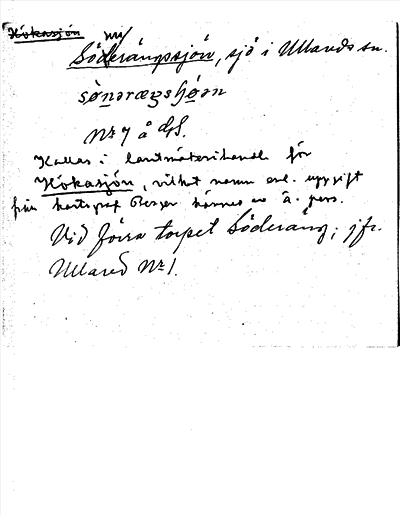 Hökasjön
Söderängssjön, sjö i Ullareds sn.
sònəræŋshǫ̀ən
Nr 7 å
Kallas i lantmäterihandl. för
Hökasjön, vilket namn enl. uppgift
från kartograf kännes av ä. pers.
Vid förra torpet Söderäng; jfr.
Ullared Nr 1.